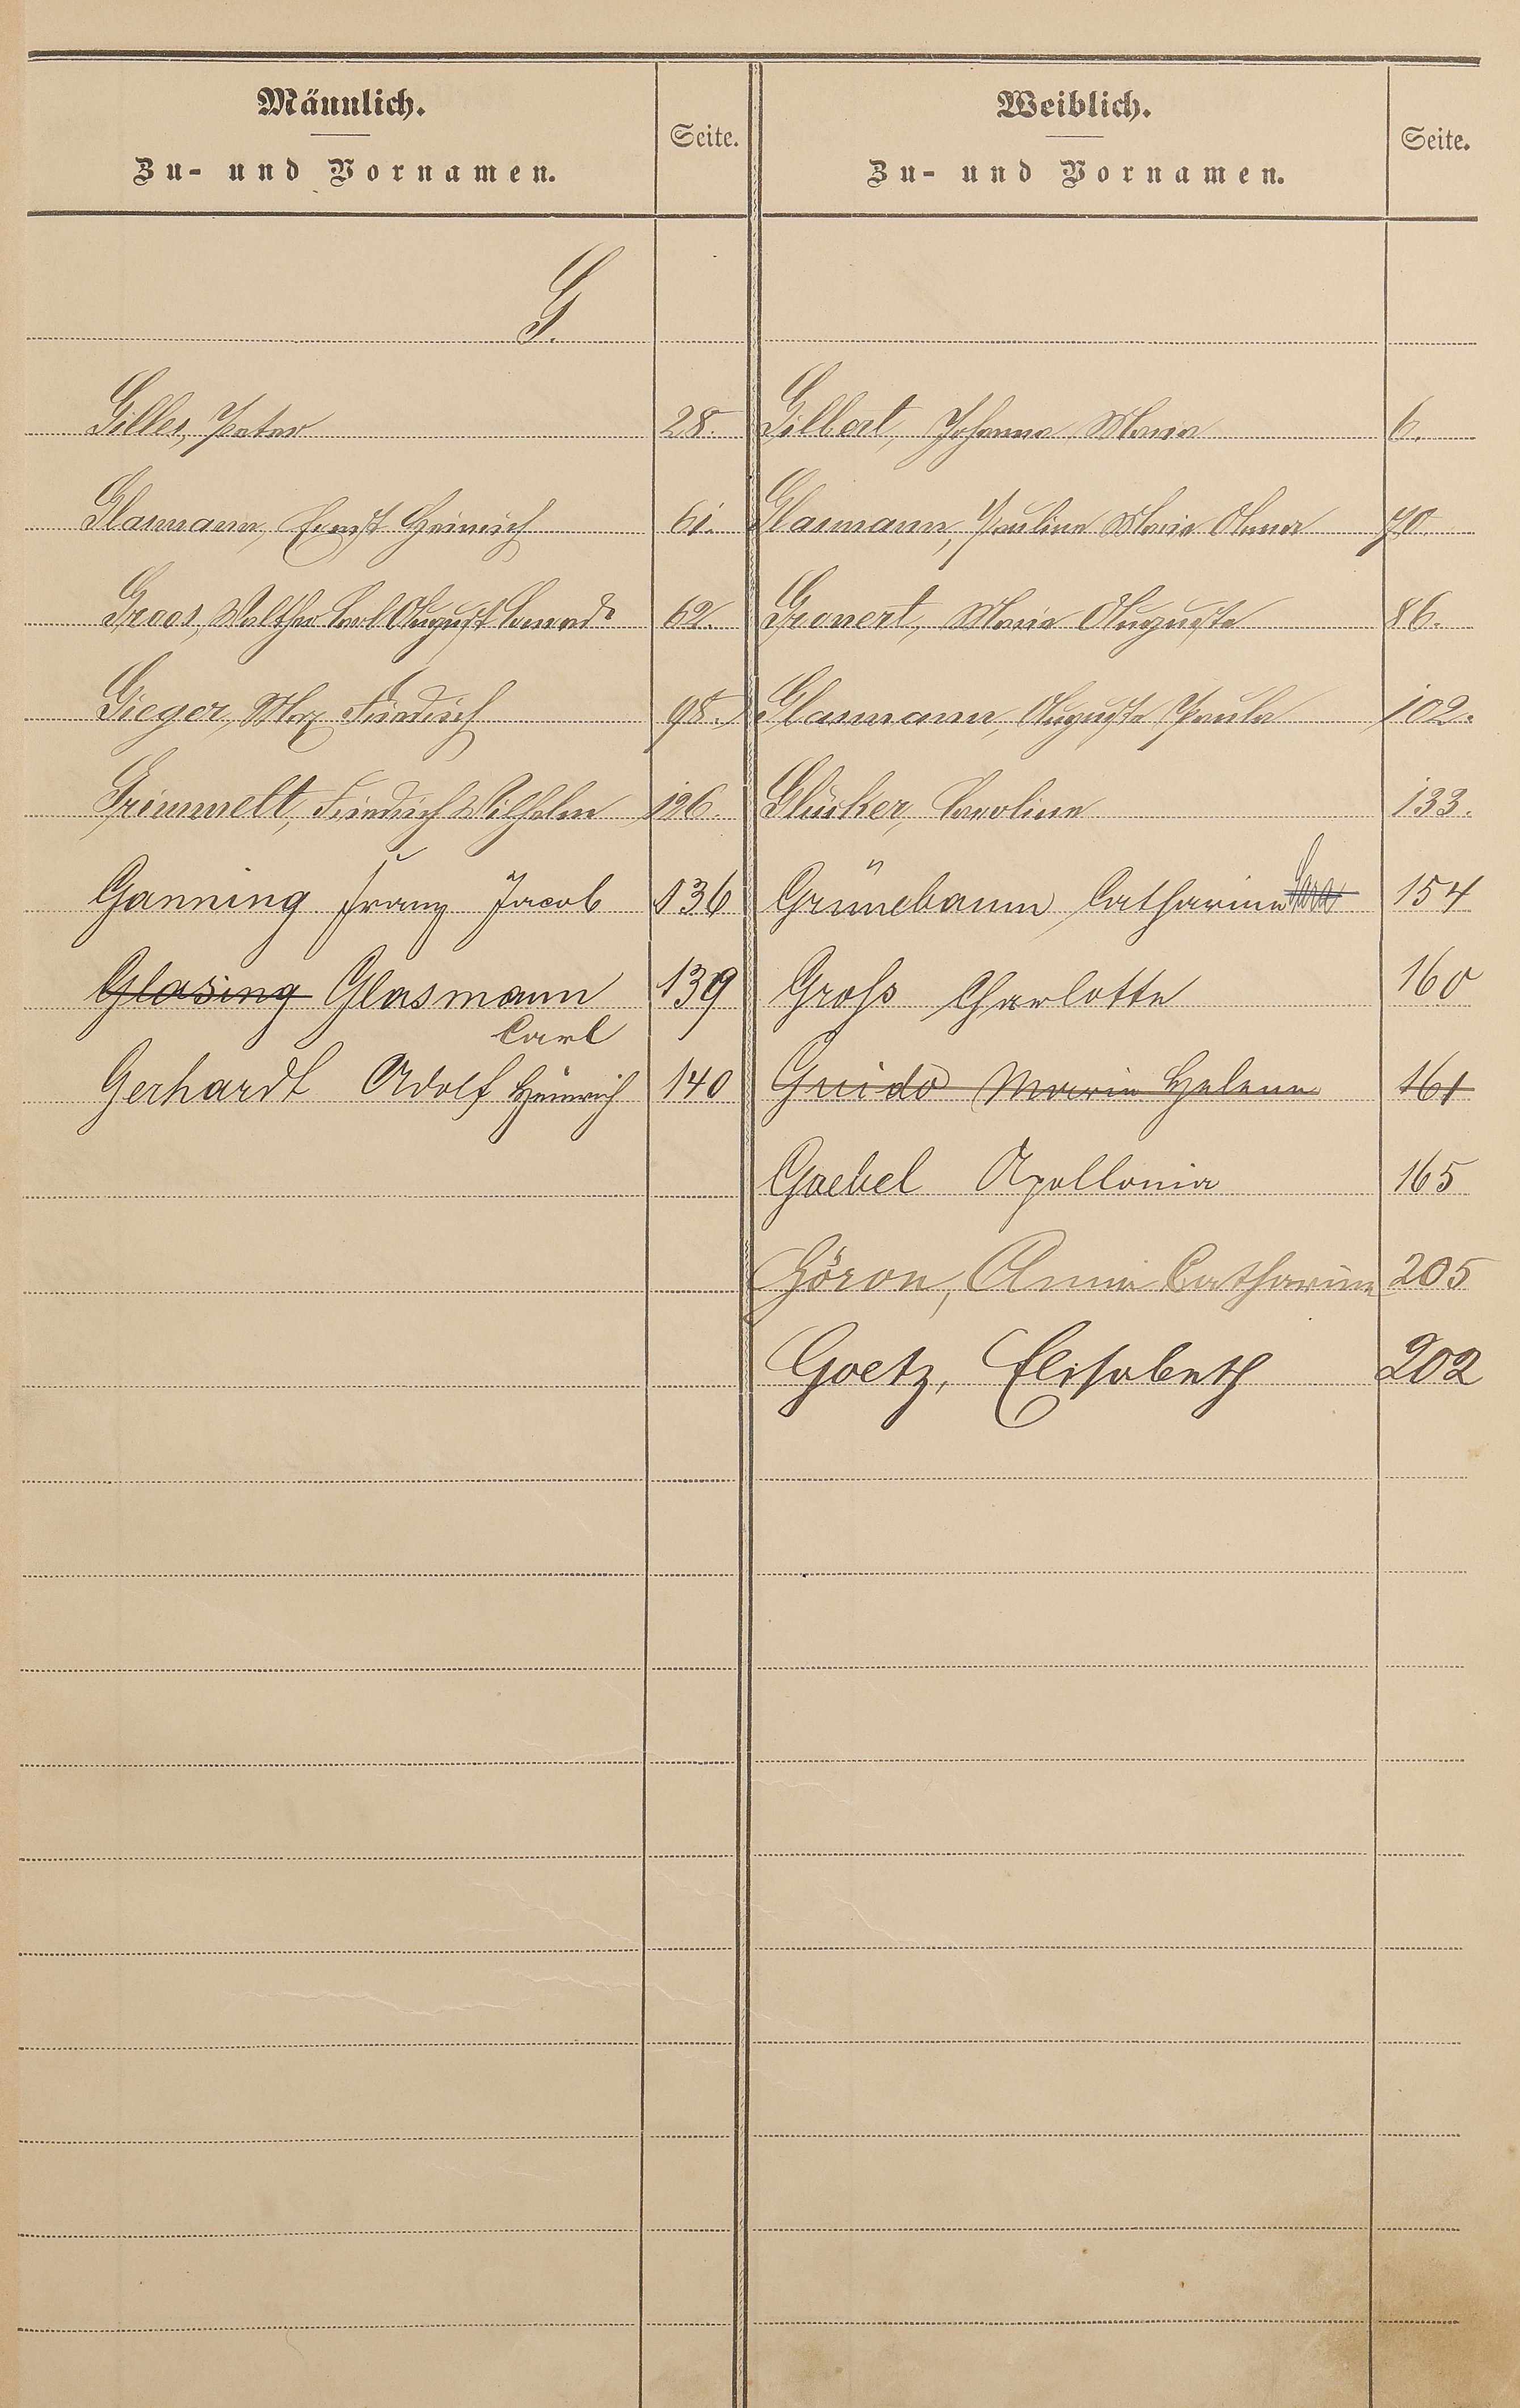 Männlich.
Zu- und Vornamen.
Seite.
Weiblich.
Zu- und Vornamen.
Seite.
G.
Gilles, Peter 28.
Glasmann, Ernst Heinrich 61.
Groos, Walther Carl August Conrad 62.
Gieger, Max Friedrich 98.
Grimmelt, Friedrich Wilhelm 126.
Ganning Franz Jacob 136
Glasing Glasmann 139
Carl
Gerhardt Adolf Heinrich 140
Gilbert, Johanna Maria 6.
Glasmann, Pauline Maria Anna 70.
Gronert, Maria Auguste 86.
Glasmann, Auguste Paula 102.
Glücker, Caroline 133.
Grünebaum Catharina Sara 154
Groß Charlotte 160
Guido Maria Helena 161
Goebel Apollonia 165
Göron, Anna Catharina 205
Goetz, Elisabeth 202